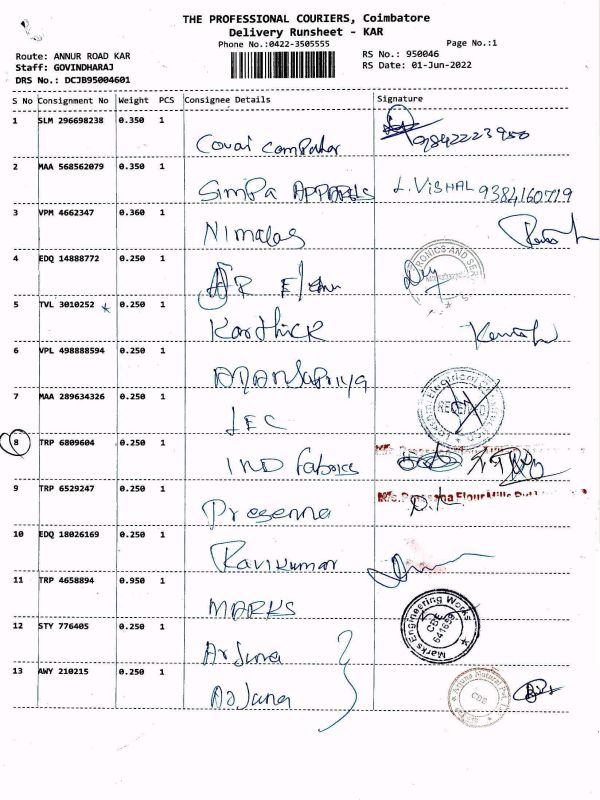 THE PROFESSIONAL COURIERS, Coimbatore
Delivery Runsheet - KAR
Phone No.:0422-3505555
Page No.:1
Route: ANNUR ROAD KAR
RS No.: 950046
Staff: GOVINDHARAJ
RS Date: 01-Jun-2022
DRS No.: DCJB95004601
S No Consignment No Weight PCS Consignee Details Signature
1 SLM 296698238 0.350 1 9842223950
Covai
2 MAA 568562079 0.350 1
Simpa APPARELS L.VISHAL 9384160719
3 VPM 4662347 0.360 1
Nimalas
4 EDQ 14888772 0.250 1
5 TVL 3010252 0.250 1
Karthick
6 VPL 498888594 0.250 1
7 MAA 289634326 0.250 1 RECEIVED
8 TRP 6809604 0.250 1
IND Fabrics
9 TRP 6529247 0.250 1 Flour Mills
Presenna
10 EDQ 18026169 0.250 1
Ravikumar
11 TRP 4658894 0.950 1
MARKS Marks Engineering Works
12 STY 776405 0.250 1 CBE
Arjuna
13 AWY 210215 0.250 1
CBE